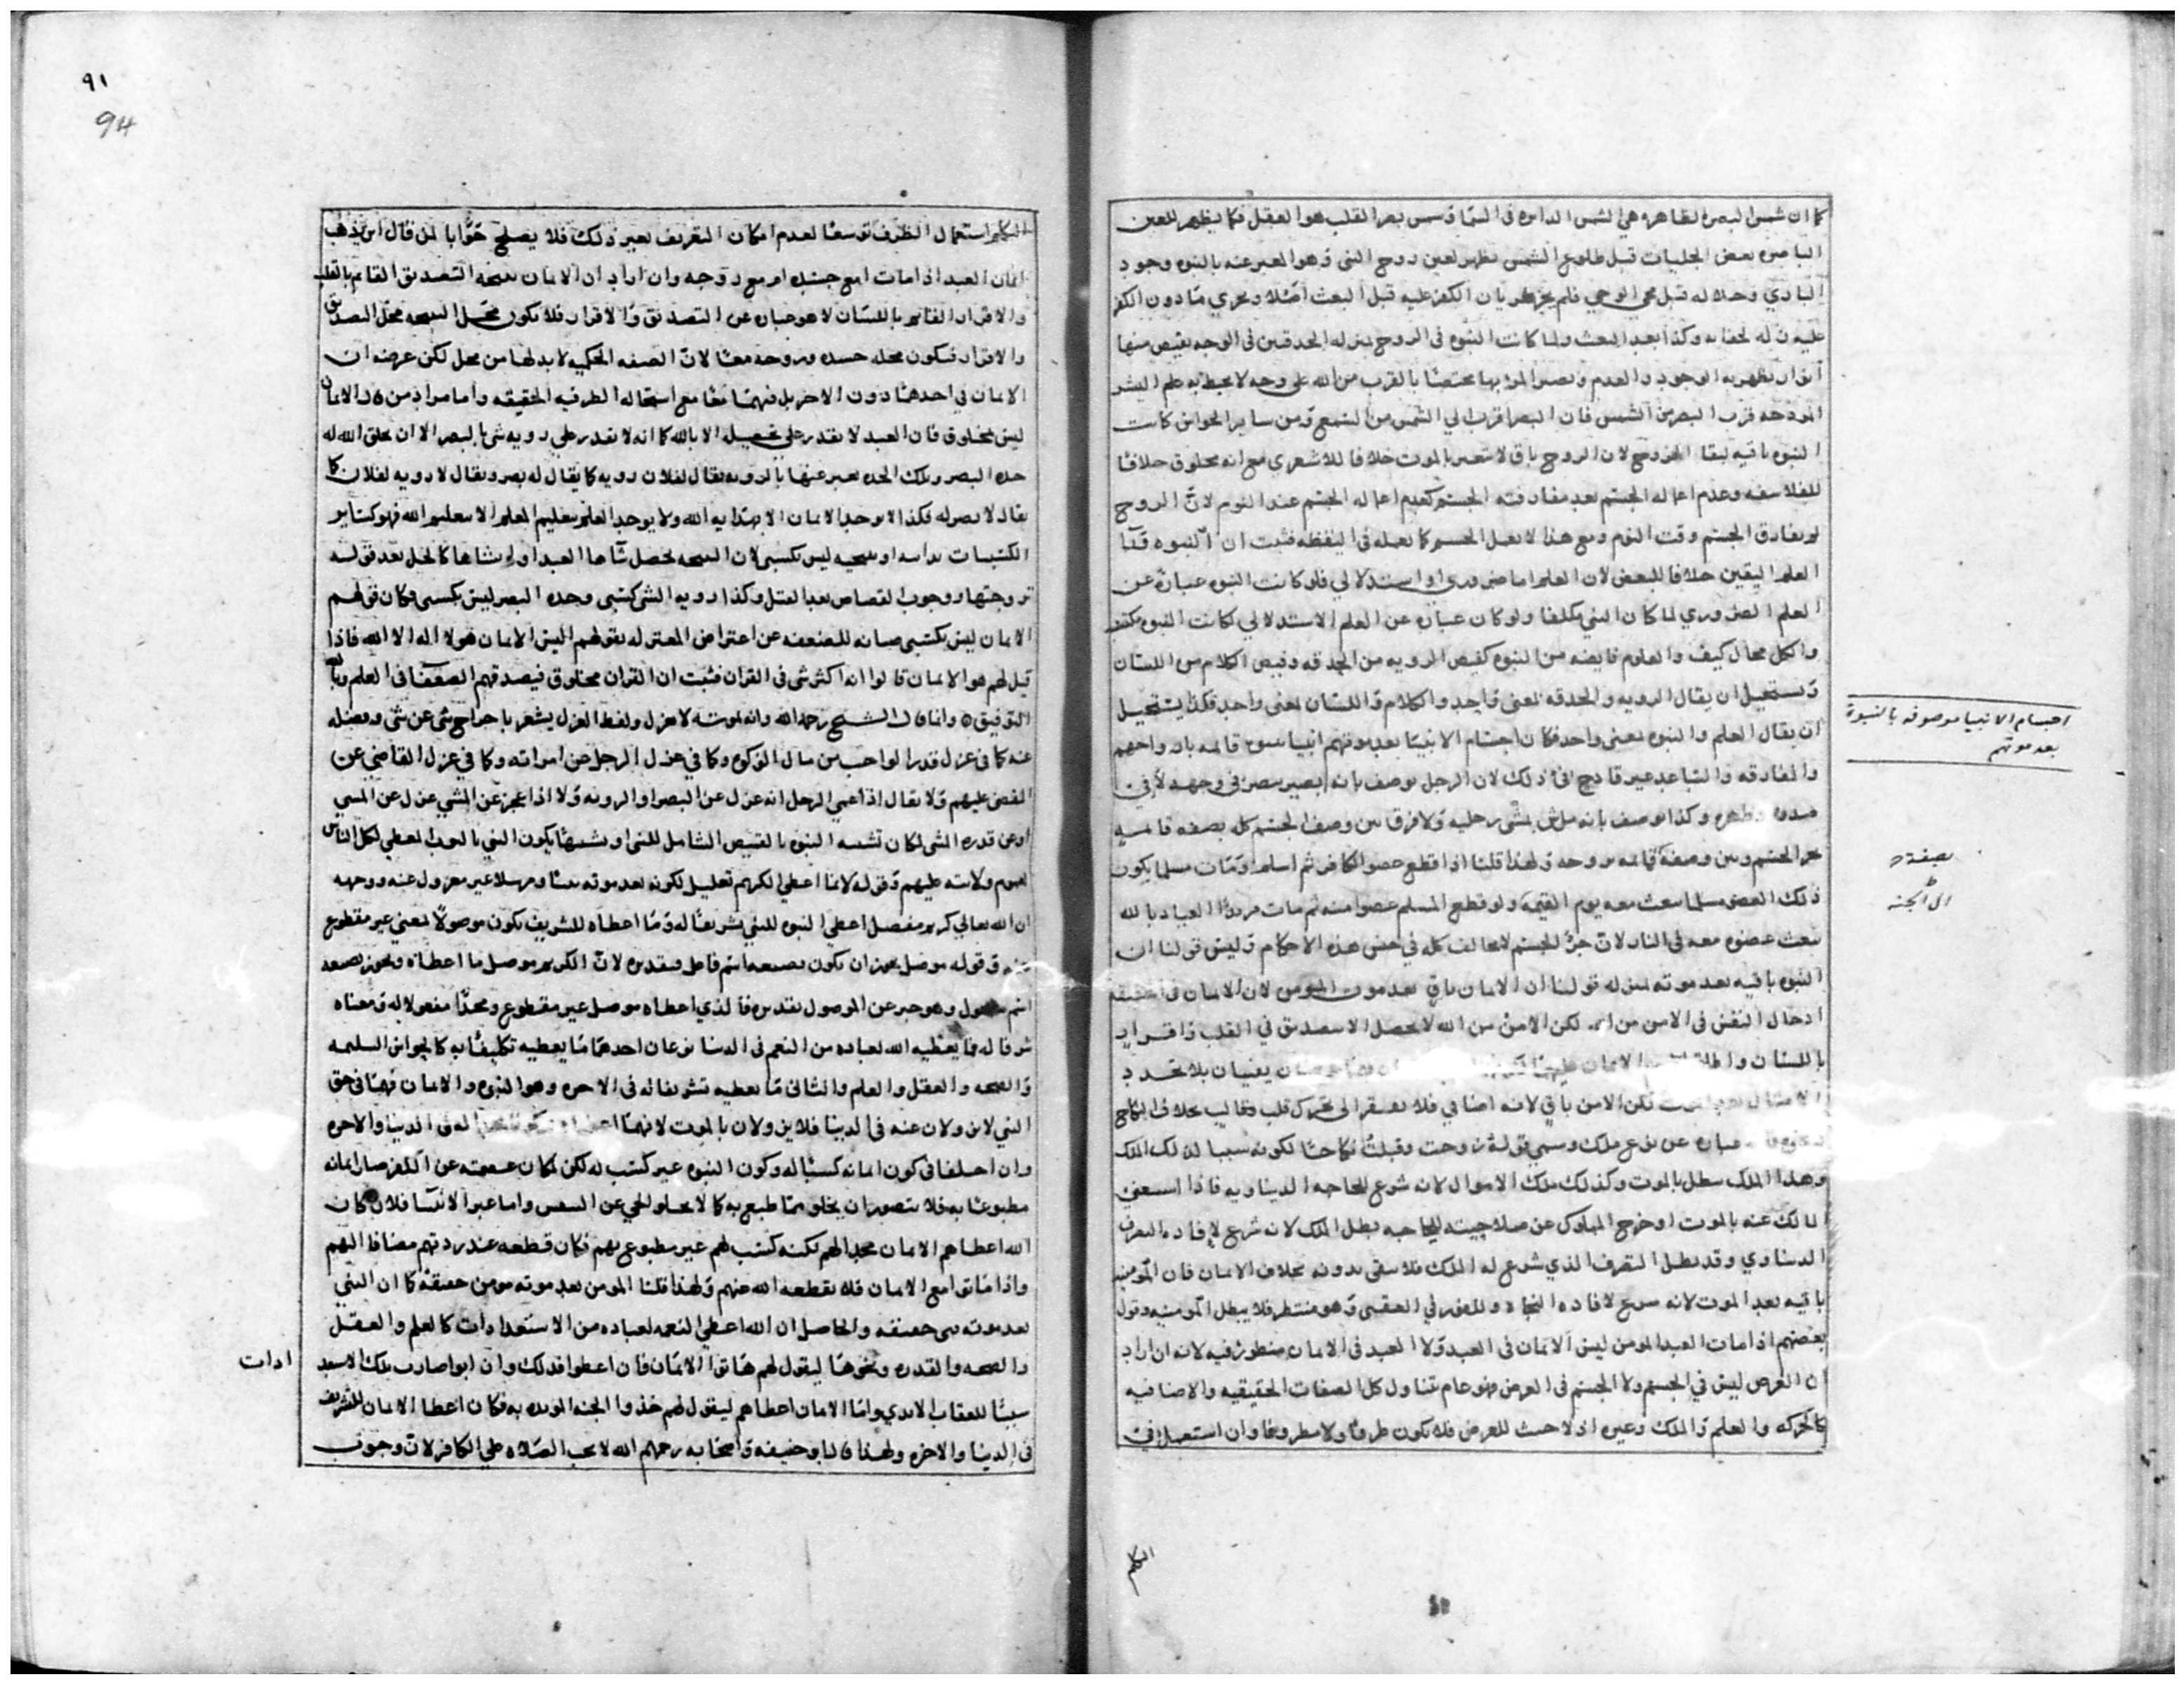 كما ان شمس البصره الظاهره هي الشمس الدايره في السما وشمس بصر القلب هو العقل فكما يظهر للعين
الباصره بعض الجليات قبل طلوع الشمس يظهر لعين روح النبي وهو المعبر عنه بالنبوه وجود
الباري وجلاله قبل مجي الوحي فلم يجز جريان الكفر عليه قبل البعث اصلا ويجري ما دون الكفر
عليه زله لخفايه وكذا بعد البعث ولما كانت النبوه في الروح بمنزله الحدقتين في الوجه يفيض منها
انوار يظهر به الوجود والعدم وتصير المرء بها مختصا بالقرب من الله على وجه لا يحيط به علم البشر
قرب البصر من الشمس فان البصر اقرب الي الشمس من السمع ومن ساير الحواس كانت
النبوه باقيه ببقا الروح لان الروح باق لا يتغير بالموت خلافا للاشعري مع انه مخلوق خلافا
للفلاسفه وعدم اعماله الجسم بعد مفارقته الجسم كعدم اعماله الجسم عند النوم لان الروح
لم يفارق الجسم وقت النوم ومع هذا لا يعمل الجسم كما يعمله في اليقظه فثبت ان النبوه
العلم اليقين خلافا للبعض لان العلم اما ضروري او استدلالي فلو كانت النبوه عبارة عن
العلم الضروري لما كان النبي مكلفا ولو كان عبارة عن العلم الاستدلالي لكانت النبوه
والكل محال كيف والعلوم فايضه من النبوه كفيض الرويه من الحدقه وفيض الكلام من اللسان
ويستحيل ان يقال الرويه والحدقه لمعنى واحد والكلام واللسان لمعنى واحد فكذا يستحيل
ان يقال العلم والنبوه بمعنى واحد فكان اجسام الانبيا بعد موتهم انبيا بنبوه قائمه بارواحهم
والمفارقه والتباعد غير قادح في ذلك لان الرجل يوصف بانه بصير ببصر في وجهه لا في
صدره وظهره وكذا يوصف بانه ماش بمشي رجليه ولا فرق بين وصف الجسم كله بصفه قائمه
بجزء الجسم وبين وصفه قائمه بروحه ولهذا قلنا اذا قطع عضو الكافر ثم اسلم ومات مسلما يكون
ذلك العضو مسلما يبعث معه يوم القيمه ولو قطع المسلم عضوا منه ثم مات مرتدا العياذ بالله
يبعث عضوه معه في النار لان جزء الجسم لا يخالف كله في بعض هذه الاحكام وليس قولنا ان
النبوه باقيه بعد موته بمنزله قولنا ان الايمان باق بعد موت المومن لان الايمان في الحقيقه
ادخال النفس في الامن من الله لكن الامن من الله لا يحصل الا بتصديق في القلب واقرار
باللسان الايمان يفنيان بلا تجدد
الامثال بعد الموت لكن الامن باق لانه اضافي فلا يفتقر الى تحرك قلب وقالب بخلاف النكاح
عبارة عن نوع ملك وسمي قوله زوجت وقبلت نكاحا لكونه سببا لذلك الملك
وهذا الملك يبطل بالموت وكذلك ملك الاموال لانه شرع للحاجه الدنياويه فاذا استغنى
المالك عنه بالموت او خرج المملوك عن صلاحيته للحاجه بطل الملك لانه شرع لافاده التصرف
الدنياوي وقد بطل التصرف الذي شرع له الملك فلا يبقى بدونه بخلاف الايمان فان المومنيه
باقيه بعد الموت لانه شرع لافاده النجاة والفوز في العقبى وهو منتظر فلا يبطل المومنيه وقول
بعضهم اذا مات العبد المومن ليس الايمان في العبد ولا العبد في الايمان منظور فيه لانه ان اراد
ان العرض ليس في الجسم ولا الجسم في العرض فهو عام تناول كل الصفات الحقيقيه والاضافيه
كالحركه والعلم والملك وغيره اذ لا جثة للعرض فلا يكون ظرفا ولا مظروفا وان استعمل في
اجسام الانبيا موصوفه بالنبوة
بعد موتهم
بصفة
الى الجنه
التكلم
٩١
94
التكلم استعمال الظرف توسعا لعدم امكان التعريف بغير ذلك فلا يصلح جوابا لمن قال اين يذهب
ايمان العبد اذا مات امع جسده او مع روحه وان اراد ان الايمان نتيجه التصديق القايم بالقلب
والاقرار القائم باللسان لا هو عبارة عن التصديق والاقرار فلا يكون محل النتيجه محل التصديق
والاقرار فيكون محله جسده وروحه معا لان الصفه الحكميه لا بد لها من محل لكن غرضه ان
الايمان في احدهما دون الاخر بل فيهما معا مع استحاله الظرفيه الحقيقه واما مراد من قال الايمان
ليس بمخلوق فان العبد لا يقدر على تحصيله الا بالله كما انه لا يقدر على رويه شي بالبصر الا ان يخلق الله له
حده البصر وتلك الحده يعبر عنها بالرويه يقال لفلان رويه كما يقال له بصر ويقال لا رويه لفلان كما
يقال لا بصر له فكذا لا يوجد الايمان الا بهدايه الله ولا يوجد العلم بتعليم المعلم الا بتعليم الله فهو كساير
الكسبيات بذاته او نتيجته ليس بكسبي لان النتيجه تحصل شاءها العبد او لم يشاءها كالحل بعد قوله
تزوجتها ووجوب القصاص بعد القتل وكذا رويه الشي كسبي وحده البصر ليس بكسبي فكان قولهم
الايمان ليس بكسبي صيانه للضعفه عن اعتراض المعتزله بقولهم اليس الايمان هو لا اله الا الله فاذا
قيل لهم هو الايمان قالوا انه اكثر شي في القران فثبت ان القران مخلوق فيصدقهم الضعفا في العلم وبالله
التوفيق ٥ وانما قال الشيخ رحمه الله وانه بموته لا يعزل ولفظ العزل يشعر باخراج شي عن شي وفصله
عنه كما في عزل قدر الواجب من مال الزكوه وكما في عزل الرجل عن امراته وكما في عزل القاضي عن
القضى عليهم ولا يقال اذا عمي الرجل انه عزل عن البصر او الرويه ولا اذا عجز عن المشي عزل عن المشي
او عن قدره المشي لمكان تشبيه النبوه بالقميص الشامل للنبى او يكون النبي بالثوب المعطي لكل الناس
لعموم ولايته عليهم وقوله لانما اعطى الكريم تعليل لكونه بعد موته نبيا ومرسلا غير معزول عنه ووجهه
ان الله تعالي كريم مفضل اعطى النبوه للنبي تشريفا له وما اعطاه للتشريف يكون موصولا لمعنى غير مقطوع
عنه وقوله موصل يجوز ان يكون بصيغه اسم فاعل وتقديره لان الكريم موصل ما اعطاه ويجوز بصيغه
اسم مفعول وهو خبر عن الموصول تقديره فالذي اعطاه موصل غير مقطوع ومجدا مفعولا له ومعناه
شرفا له فما يعطيه الله لعباده من النعم في الدنيا نوعان احدهما ما يعطيه تكليفا به كالحواس السليمه
والصحه والعقل والعلم والثاني ما يعطيه تشريفا له في الاخره وهو النبوه والايمان فهما في حق
النبي لا يزولان عنه في الدنيا فلا يزولان بالموت لانهما له في الدنيا والاخره
وان اختلفا في كون ايمانه كسبيا له وكون النبوه غير كسب له لكن لمكان عصمته عن الكفر صار ايمانه
مطبوعا به فلا يتصور ان يخلو مما طبع به كما لا يخلو الحي عن النفس واما غير الانبيا فلان كان
الله اعطاهم الايمان مجدا لهم لكنه كسب لهم غير مطبوع بهم فكان قطعه عند ردتهم مضافا اليهم
واذا ماتوا مع الايمان فلا يقطعه الله عنهم ولهذا قلنا المومن بعد موته مومن حقيقه كما ان النبي
بعد موته نبي حقيقه والحاصل ان الله اعطى النعمه لعباده من الاستعدادات كالعلم والعقل
والصحه والقدره ونحوها ليقول لهم هاتوا الايمان فان اعطوا فذلك وان ابوا صارت تلك الاستعد
ادات
سببا للعقاب الابدي واما الايمان اعطاهم ليقول لهم خذوا الجنه الموبده به فكان اعطا الايمان للتشريف
في الدنيا والاخره ولهذا قال ابو حنيفه واصحابه رحمهم الله لا يجب الصلاه على الكافر لان وجوب